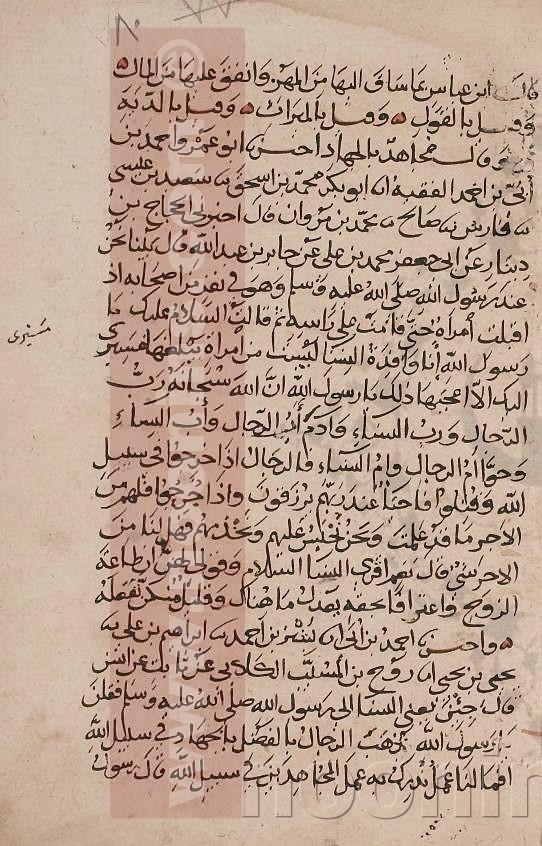 قال ابن عباس بما ساق اليها من المهر وانفق عليها من المال
وقيل بالقول وقيل بالميراث وقيل بالدية
وقال مجاهد بالجهاد اخبرنا ابو عمرو احمد بن
أبي بن احمد الفقيه انا ابو بكر محمد بن اسحق نا سعيد بن عيسى
نا فارس نا صالح نا محمد بن مروان قال اخبرني الحجاج بن
دينار عن ابي جعفر محمد بن علي عن جابر بن عبد الله قال بينا نحن
عند رسول الله صلى الله عليه وسلم وهو في نفر من اصحابه اذ
اقبلت امرأة حتى قامت على راسه ثم قالت السلام عليك يا
رسول الله أنا وافدة النساء اليك ليست من امراة يبلغها مسيري
مسيري
اليك الا اعجبها ذلك يا رسول الله ان الله سبحانه رب
الرجال ورب النساء وادم أب الرجال وأب النساء
وحوا ام الرجال وام النساء فالرجال اذا خرجوا في سبيل
الله وقتلوا فاحياء عند ربهم يرزقون واذا خرجوا فلهم من
الاجر ما قد علمت ونحن نجلس عليهم ونخدمهم فهل لنا من
الاجر شي قال نعم اقري النساء السلام وقولي لهن ان طاعة
الزوج واعترافا بحقه يعدل ما هناك وقليل منكن تفعله
واخبرنا احمد بن أبي انا بشر بن احمد نا ابراهيم بن علي نا
يحيى بن يحيى انا روح بن المسيب الكلابي عن ثابت عن انس
قال جئن يعني النساء الى رسول الله صلى الله عليه وسلم فقلن
يا رسول الله ذهب الرجال بالفضل بالجهاد في سبيل الله
افما لنا عمل ندرك به عمل المجاهدين في سبيل الله قال رسول